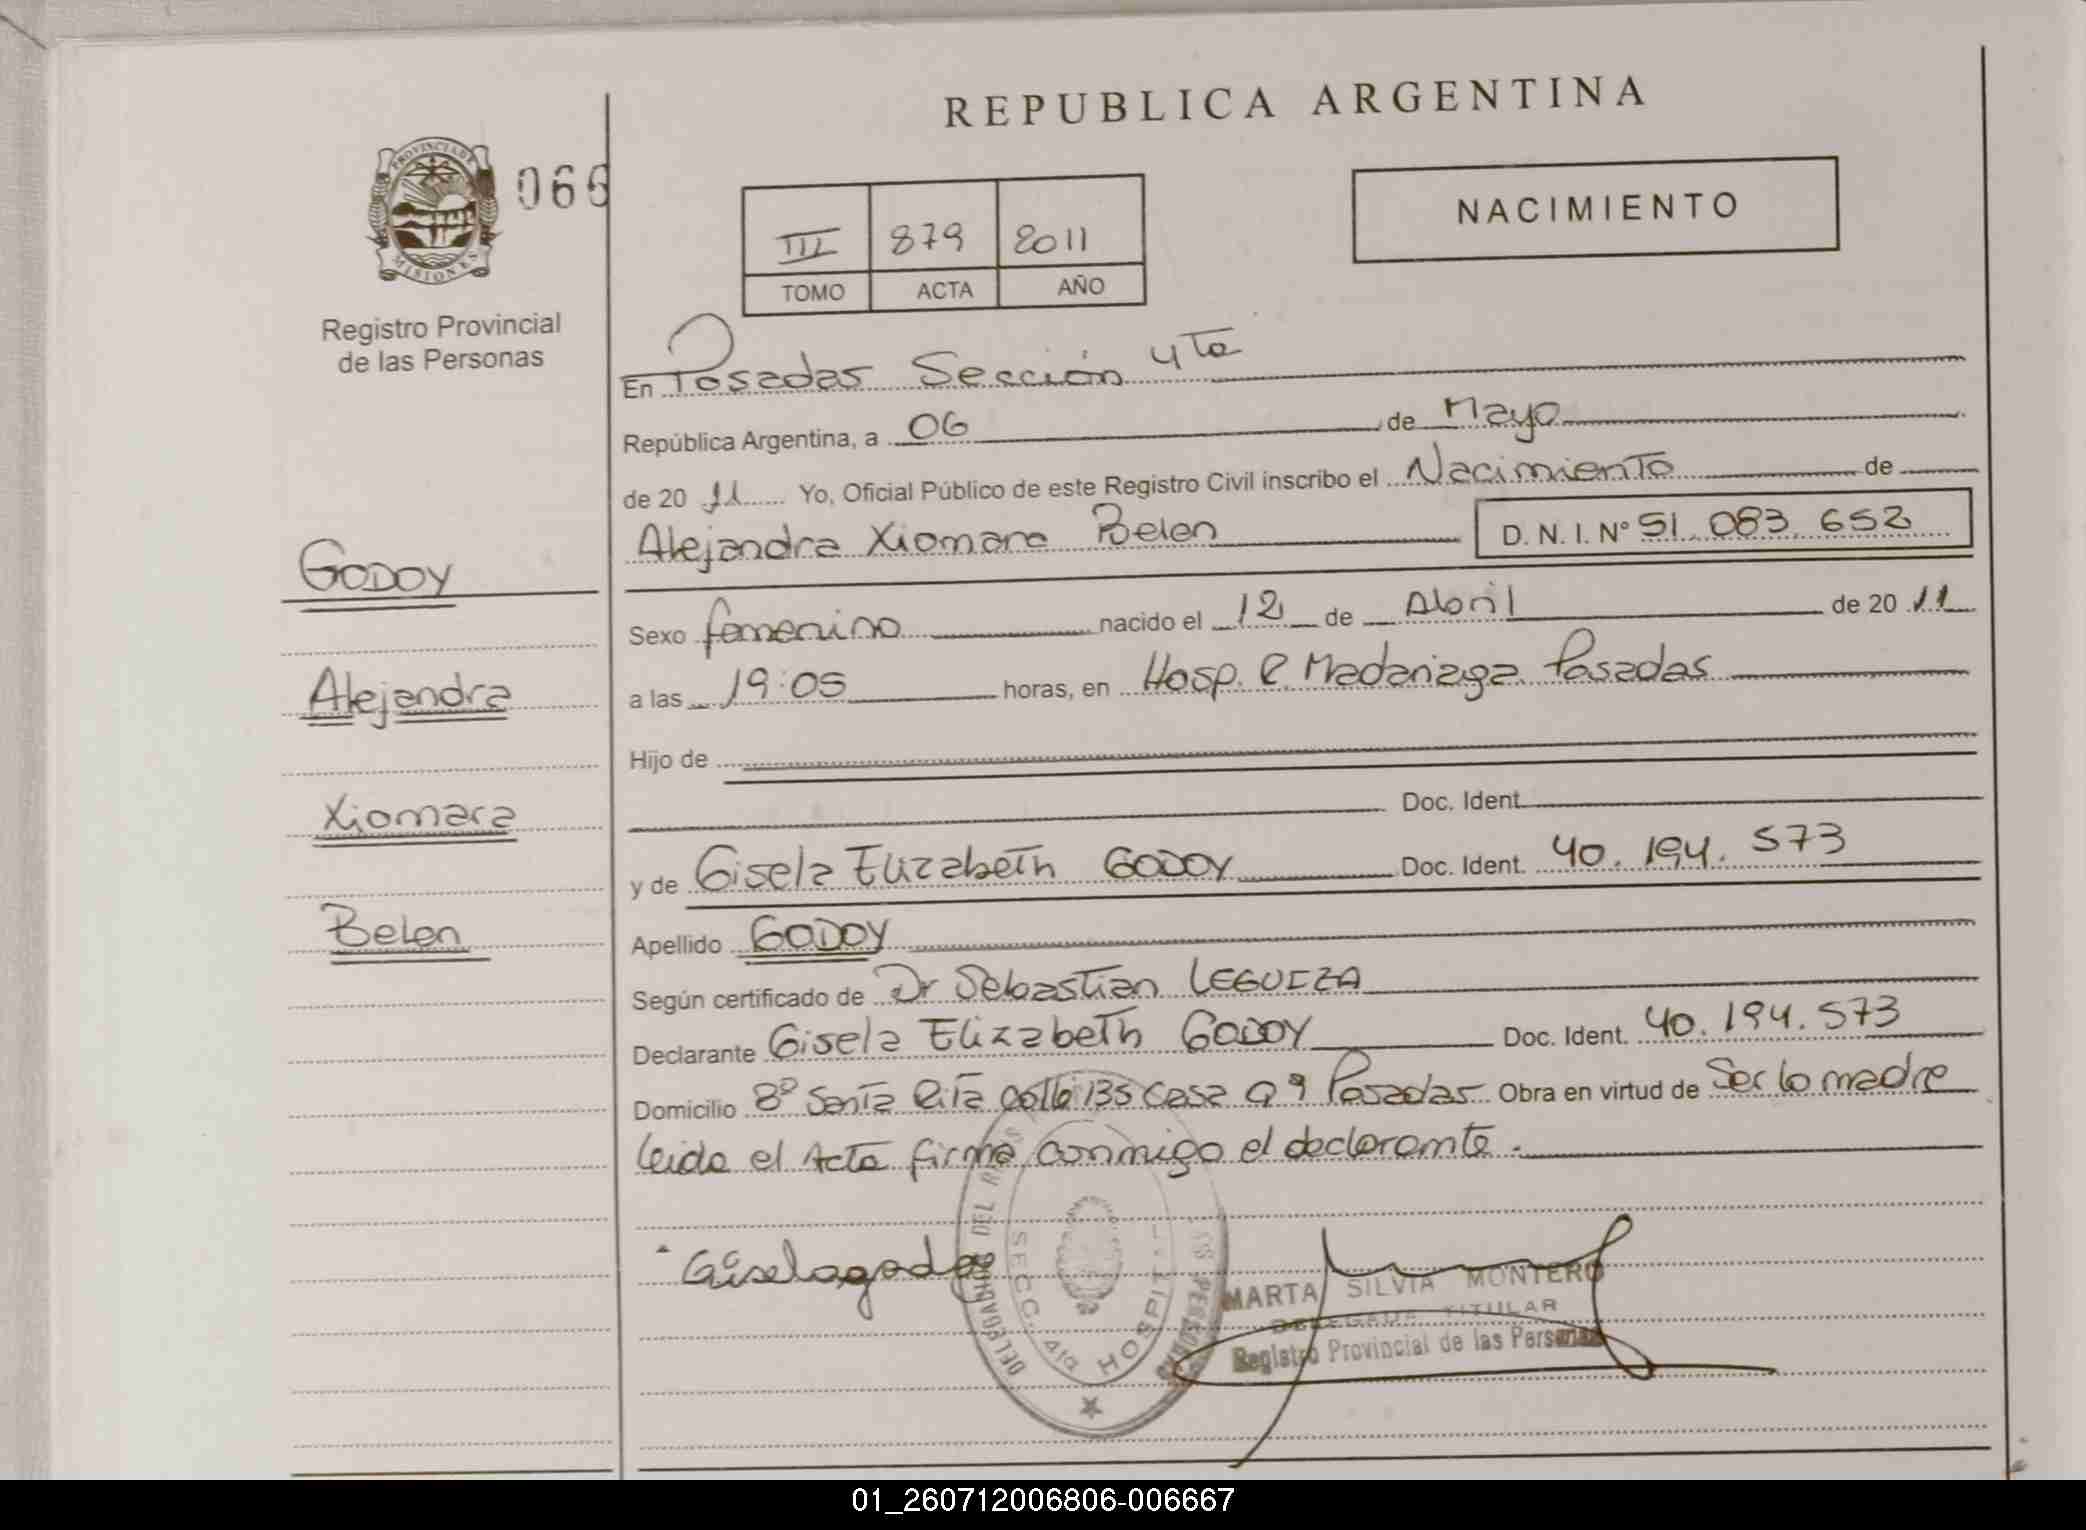 REPUBLICA ARGENTINA
PROVINCIA DE MISIONES
066
NACIMIENTO
III 879 2011
TOMO ACTA AÑO
Registro Provincial
de las Personas
En Posadas Sección 4ta
República Argentina, a 06 de Mayo
de 20 11 Yo, Oficial Público de este Registro Civil inscribo el Nacimiento de
Alejandra Xiomara Belen D. N. I. Nº 51.083.652
GODOY
Alejandra
Xiomara
Belen
Sexo femenino nacido el 12 de Abril de 20 11
a las 19:05 horas, en Hosp. R. Madariaga Posadas
Hijo de
Doc. Ident.
y de Gisela Elizabeth GODOY Doc. Ident. 40.194.573
Apellido GODOY
Según certificado de Dr Sebastian LEGUIZA
Declarante Gisela Elizabeth GODOY Doc. Ident. 40.194.573
Domicilio Bº Santa Rita calle 135 casa Posadas Obra en virtud de Ser la madre
leida el Acta firma conmigo el declarante.
Giselagodoy
DELEGACION DEL PERSONAS
SECC. 4ta HOSPITAL
MARTA SILVIA MONTERO
DELEGADA TITULAR
Registro Provincial de las Personas
01_260712006806-006667